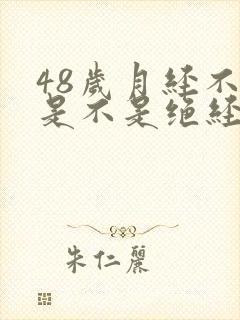 48歲月经不
是不是绝经
朱仁麗